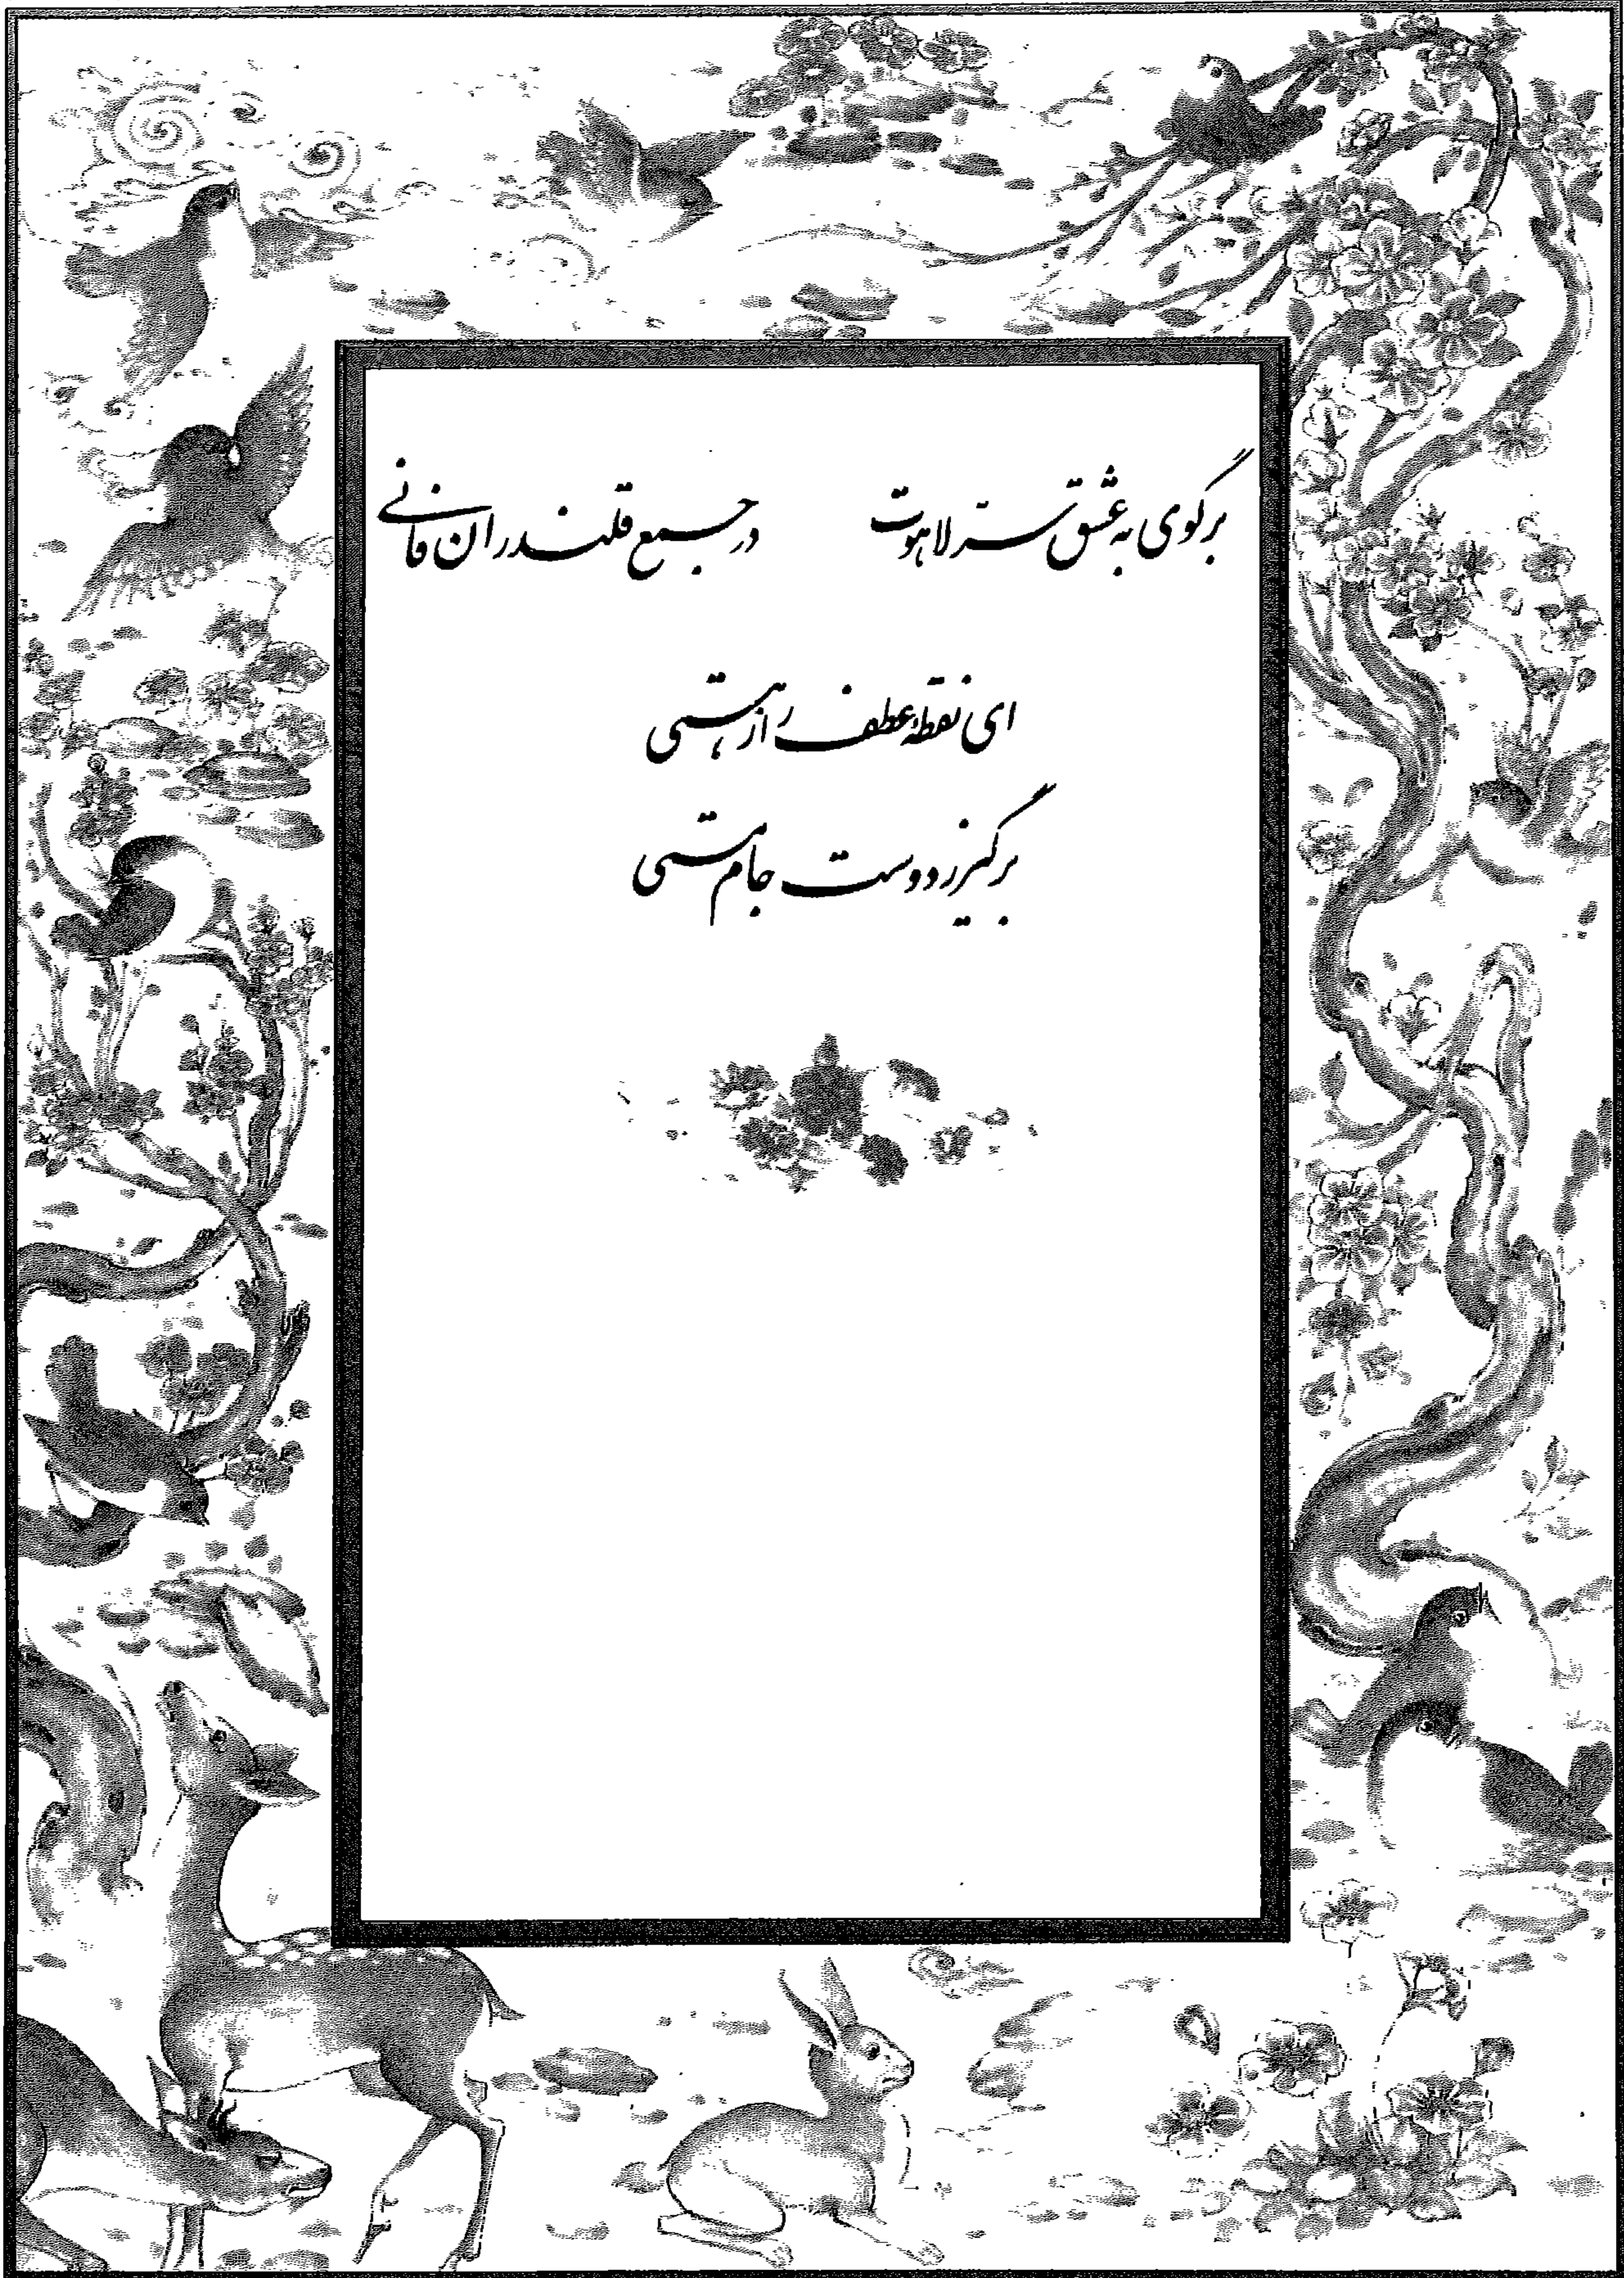 برگوی به عشق ستر لاهوت در جمع قلندران فانی
ای نقطه عطف راز هستی
برگیر ز دوست جام مستی